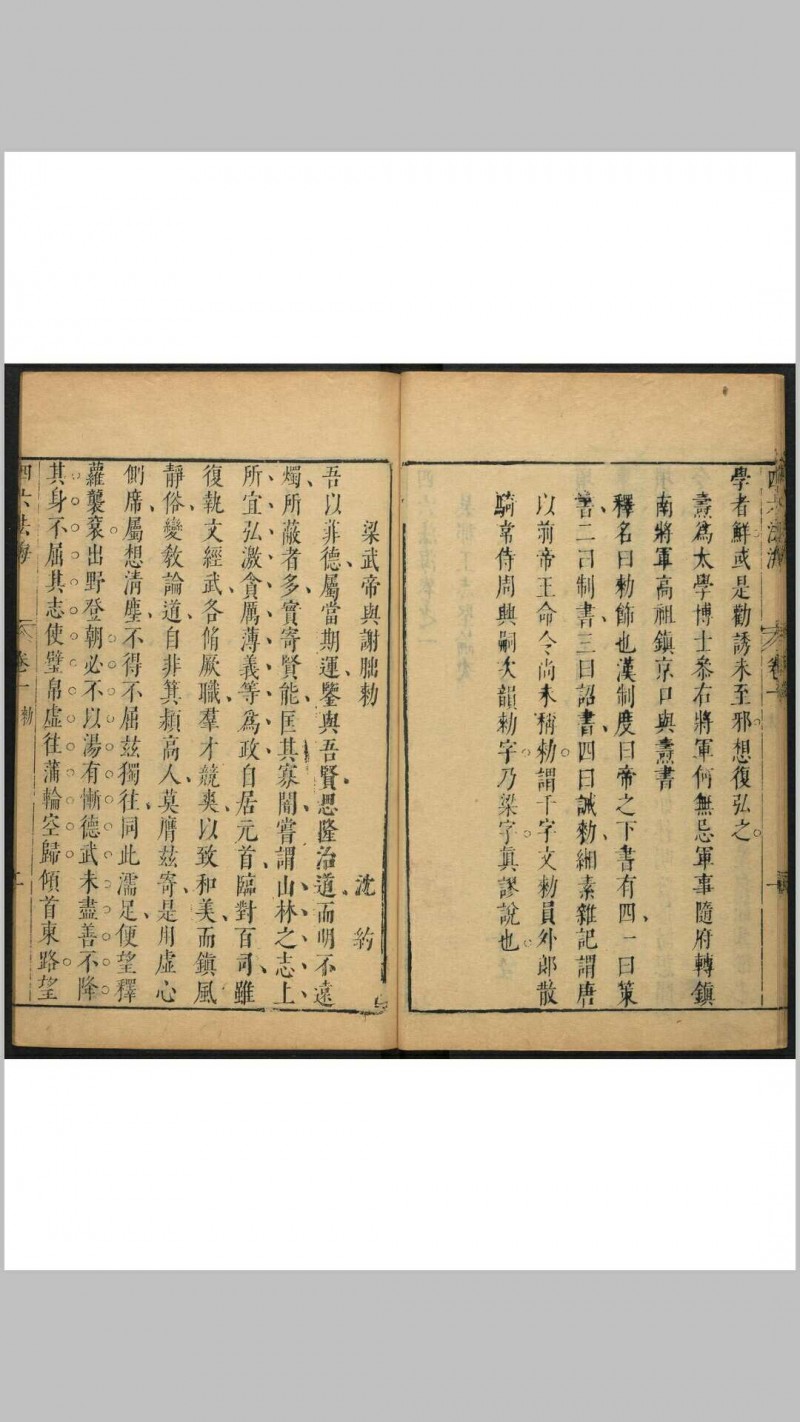 學者鮮或是勸誘未至邪想復弘之
燾爲太學博士參右將軍何無忌軍事隨府轉鎮
南將軍高祖鎮京口與燾書
釋名曰勑飾也漢制度曰帝之下書有四一曰策
書二曰制書三曰詔書四曰誡勑緗素雜記謂唐
以前帝王命令尚未稱勑謂千字文勑員外郎散
騎常侍周興嗣次韻勑字乃梁字眞謬說也
梁武帝與謝朏勑
沈約
吾以菲德屬當期運鑒與吾賢思隆治道而明不遠
燭所蔽者多實寄賢能匡其寡闇嘗謂山林之志上
所宜弘激貪厲薄義等爲政自居元首臨對百司雖
復執文經武各脩厥職羣才競爽以致和美而鎮風
靜俗變敎論道自非箕潁高人莫膺茲寄是用虛心
側席屬想清塵不得不屈茲獨往同此濡足便望釋
蘿襲衮出野登朝必不以湯有慚德武未盡善不降
其身不屈其志使璧帛虛往蒲輪空歸傾首東路望
四六法海
卷一
勑